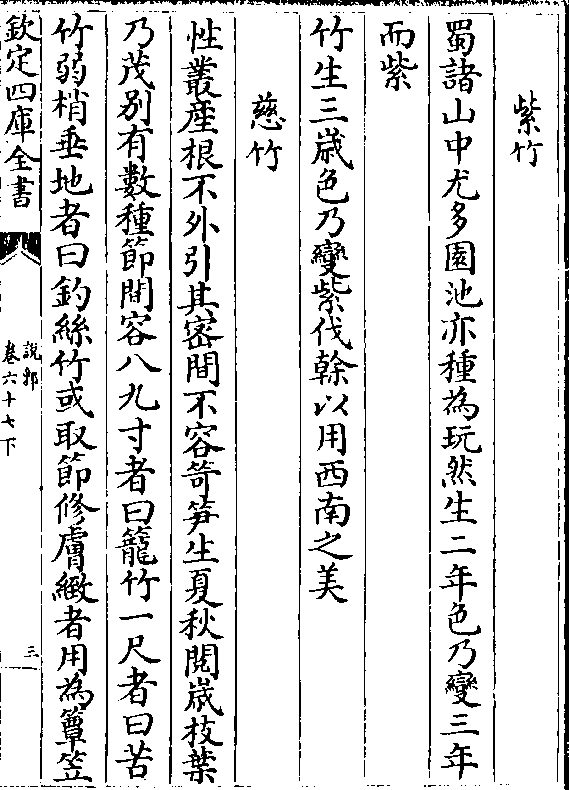 紫竹
蜀諸山中尤多園池亦種為玩然生二年色乃變三年
而紫
竹生三歳色乃變紫伐榦以用西南之美
慈竹
性叢產根不外引其密間不容笴笋生夏秋閱歳枝葉
乃茂别有數種節間容八九寸者曰籠竹一尺者曰苦
竹弱梢垂地者曰釣絲竹或取節修膚緻者用為簟笠
欽定四庫全書
說郛
卷六十七下
三